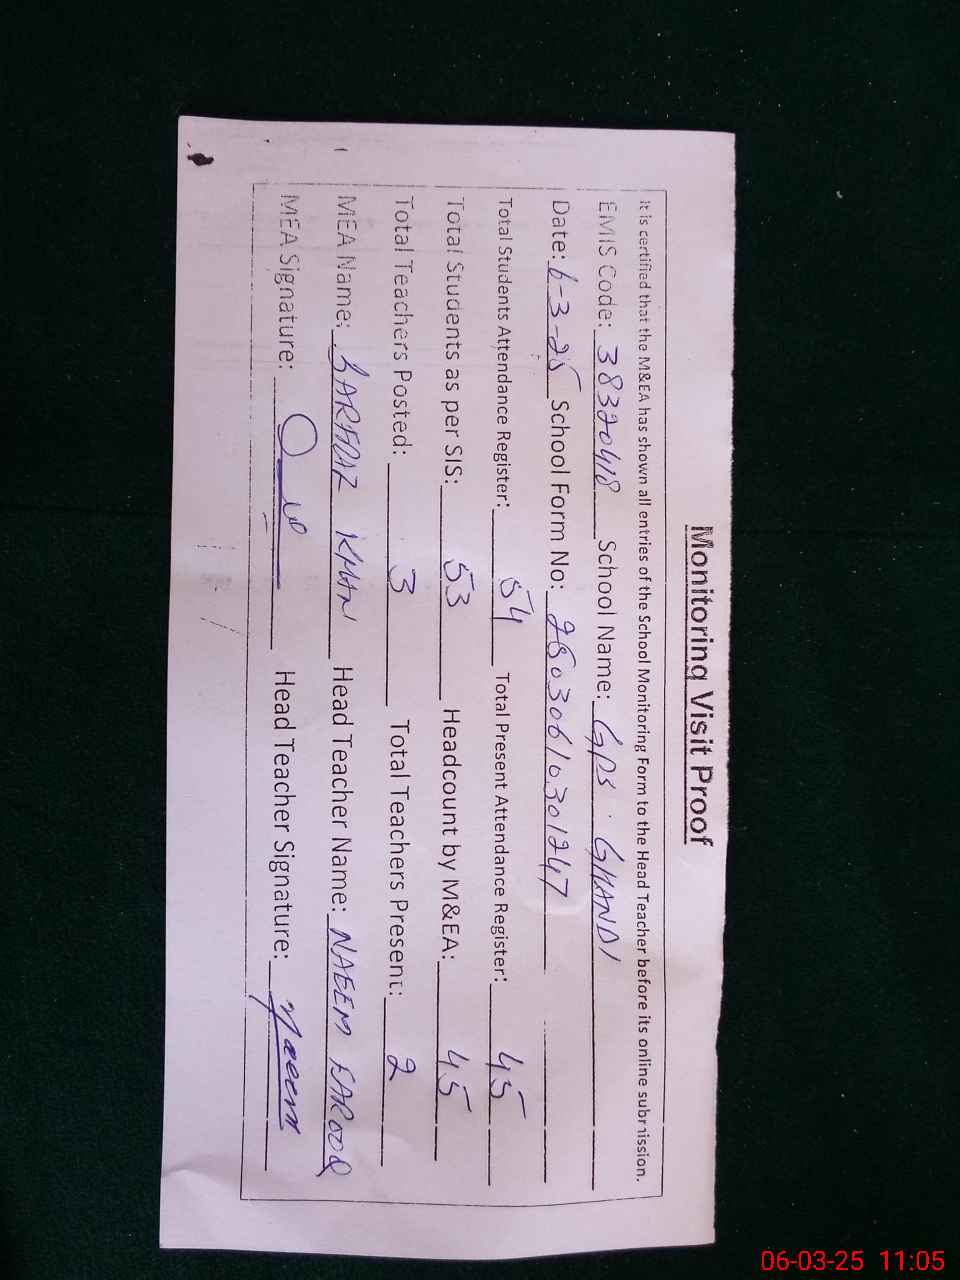 Monitoring Visit Proof
It is certified that the M&EA has shown all entries of the School Monitoring Form to the Head Teacher before its online submission.
EMIS Code: 38320418 School Name: GPS. GHANDI
Date: 6-3-25 School Form No: 25030610301247
Total Students Attendance Register: 54 Total Present Attendance Register: 45
Total Students as per SIS: 53 Headcount by M&EA: 45
Total Teachers Posted: 3 Total Teachers Present: 2
MEA Name: KHAN Head Teacher Name: NAEEM FAROOQ
MEA Signature: Head Teacher Signature: Naeem
06-03-25 11:05